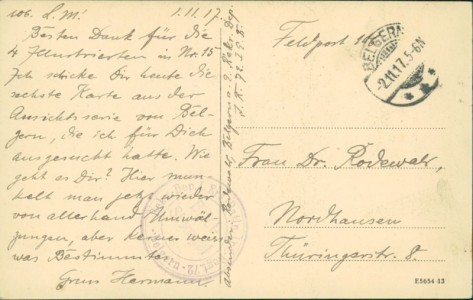 L. M! 1.11.17.
Besten Dank für die
4 Illustrierten in No. 15
Ich schicke Dir heute die
sechste Karte aus der
Ansichtsserie von Bel-
gern, die ich für Dich
ausgesucht hatte. Wie
geht es Dir? Hier mun-
kelt man jetzt wieder
von allerhand Umwäl-
zungen, aber keiner weiss
was Bestimmtes.
Gruss Hermann.
Absender: Rodewald, Belgern a. E. Rekr. Dep.
Feldpost
BELGERN
-2.11.17. 5-6N
Frau Dr. Rodewald,
Nordhausen
Thüringerstr. 8
E5654 12